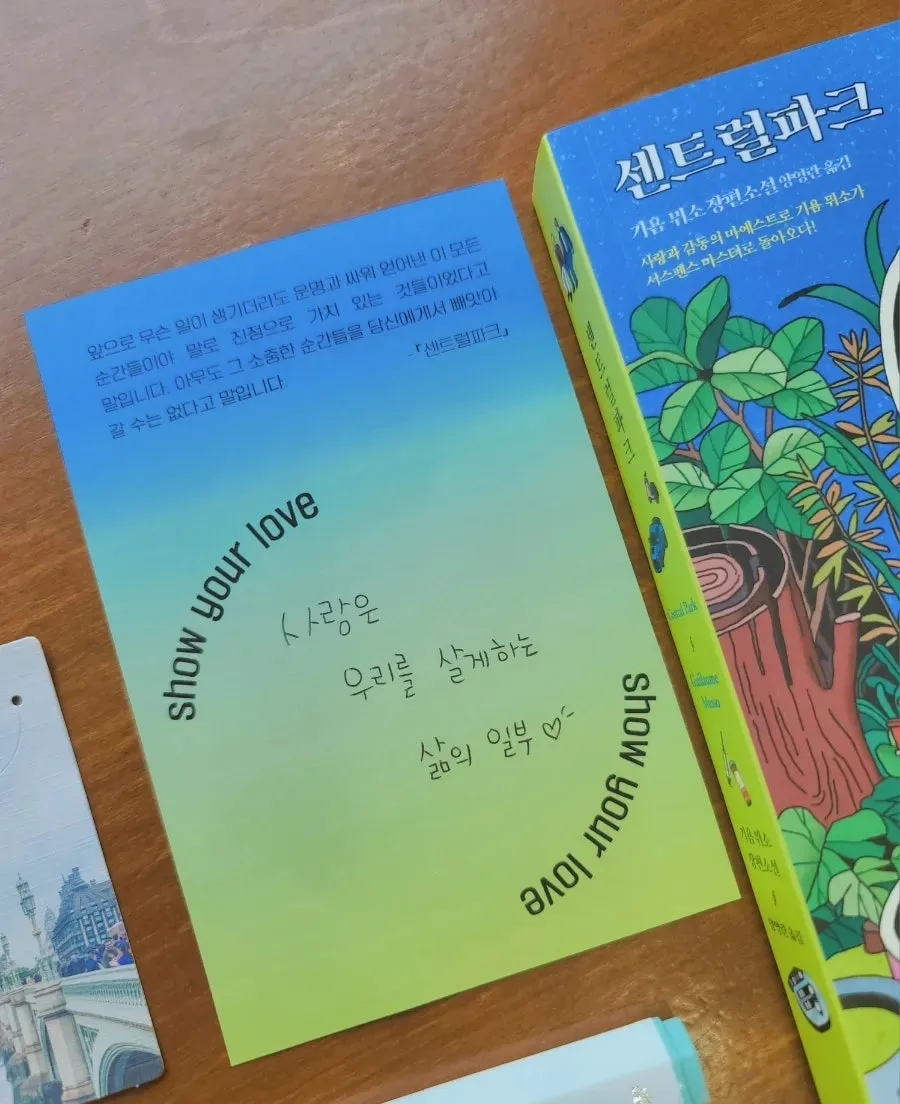 앞으로 무슨 일이 생기더라도 운명과 싸워 얻어낸 이 모든
순간들이야 말로 진정으로 가치 있는 것들이었다고
말입니다. 아무도 그 소중한 순간들을 당신에게서 빼앗아
갈 수는 없다고 말입니다.
-『센트럴파크』
show your love
사랑은
우리를 살게하는
삶의 일부♡
show your love
센트럴파크
기욤 뮈소 장편소설 양영란 옮김
사랑과 감동의 마에스트로 기욤 뮈소가
서스펜스 마스터로 돌아오다!
센트럴파크
Central Park
Guillaume
Musso
기욤 뮈소
장편소설
양영란 옮김